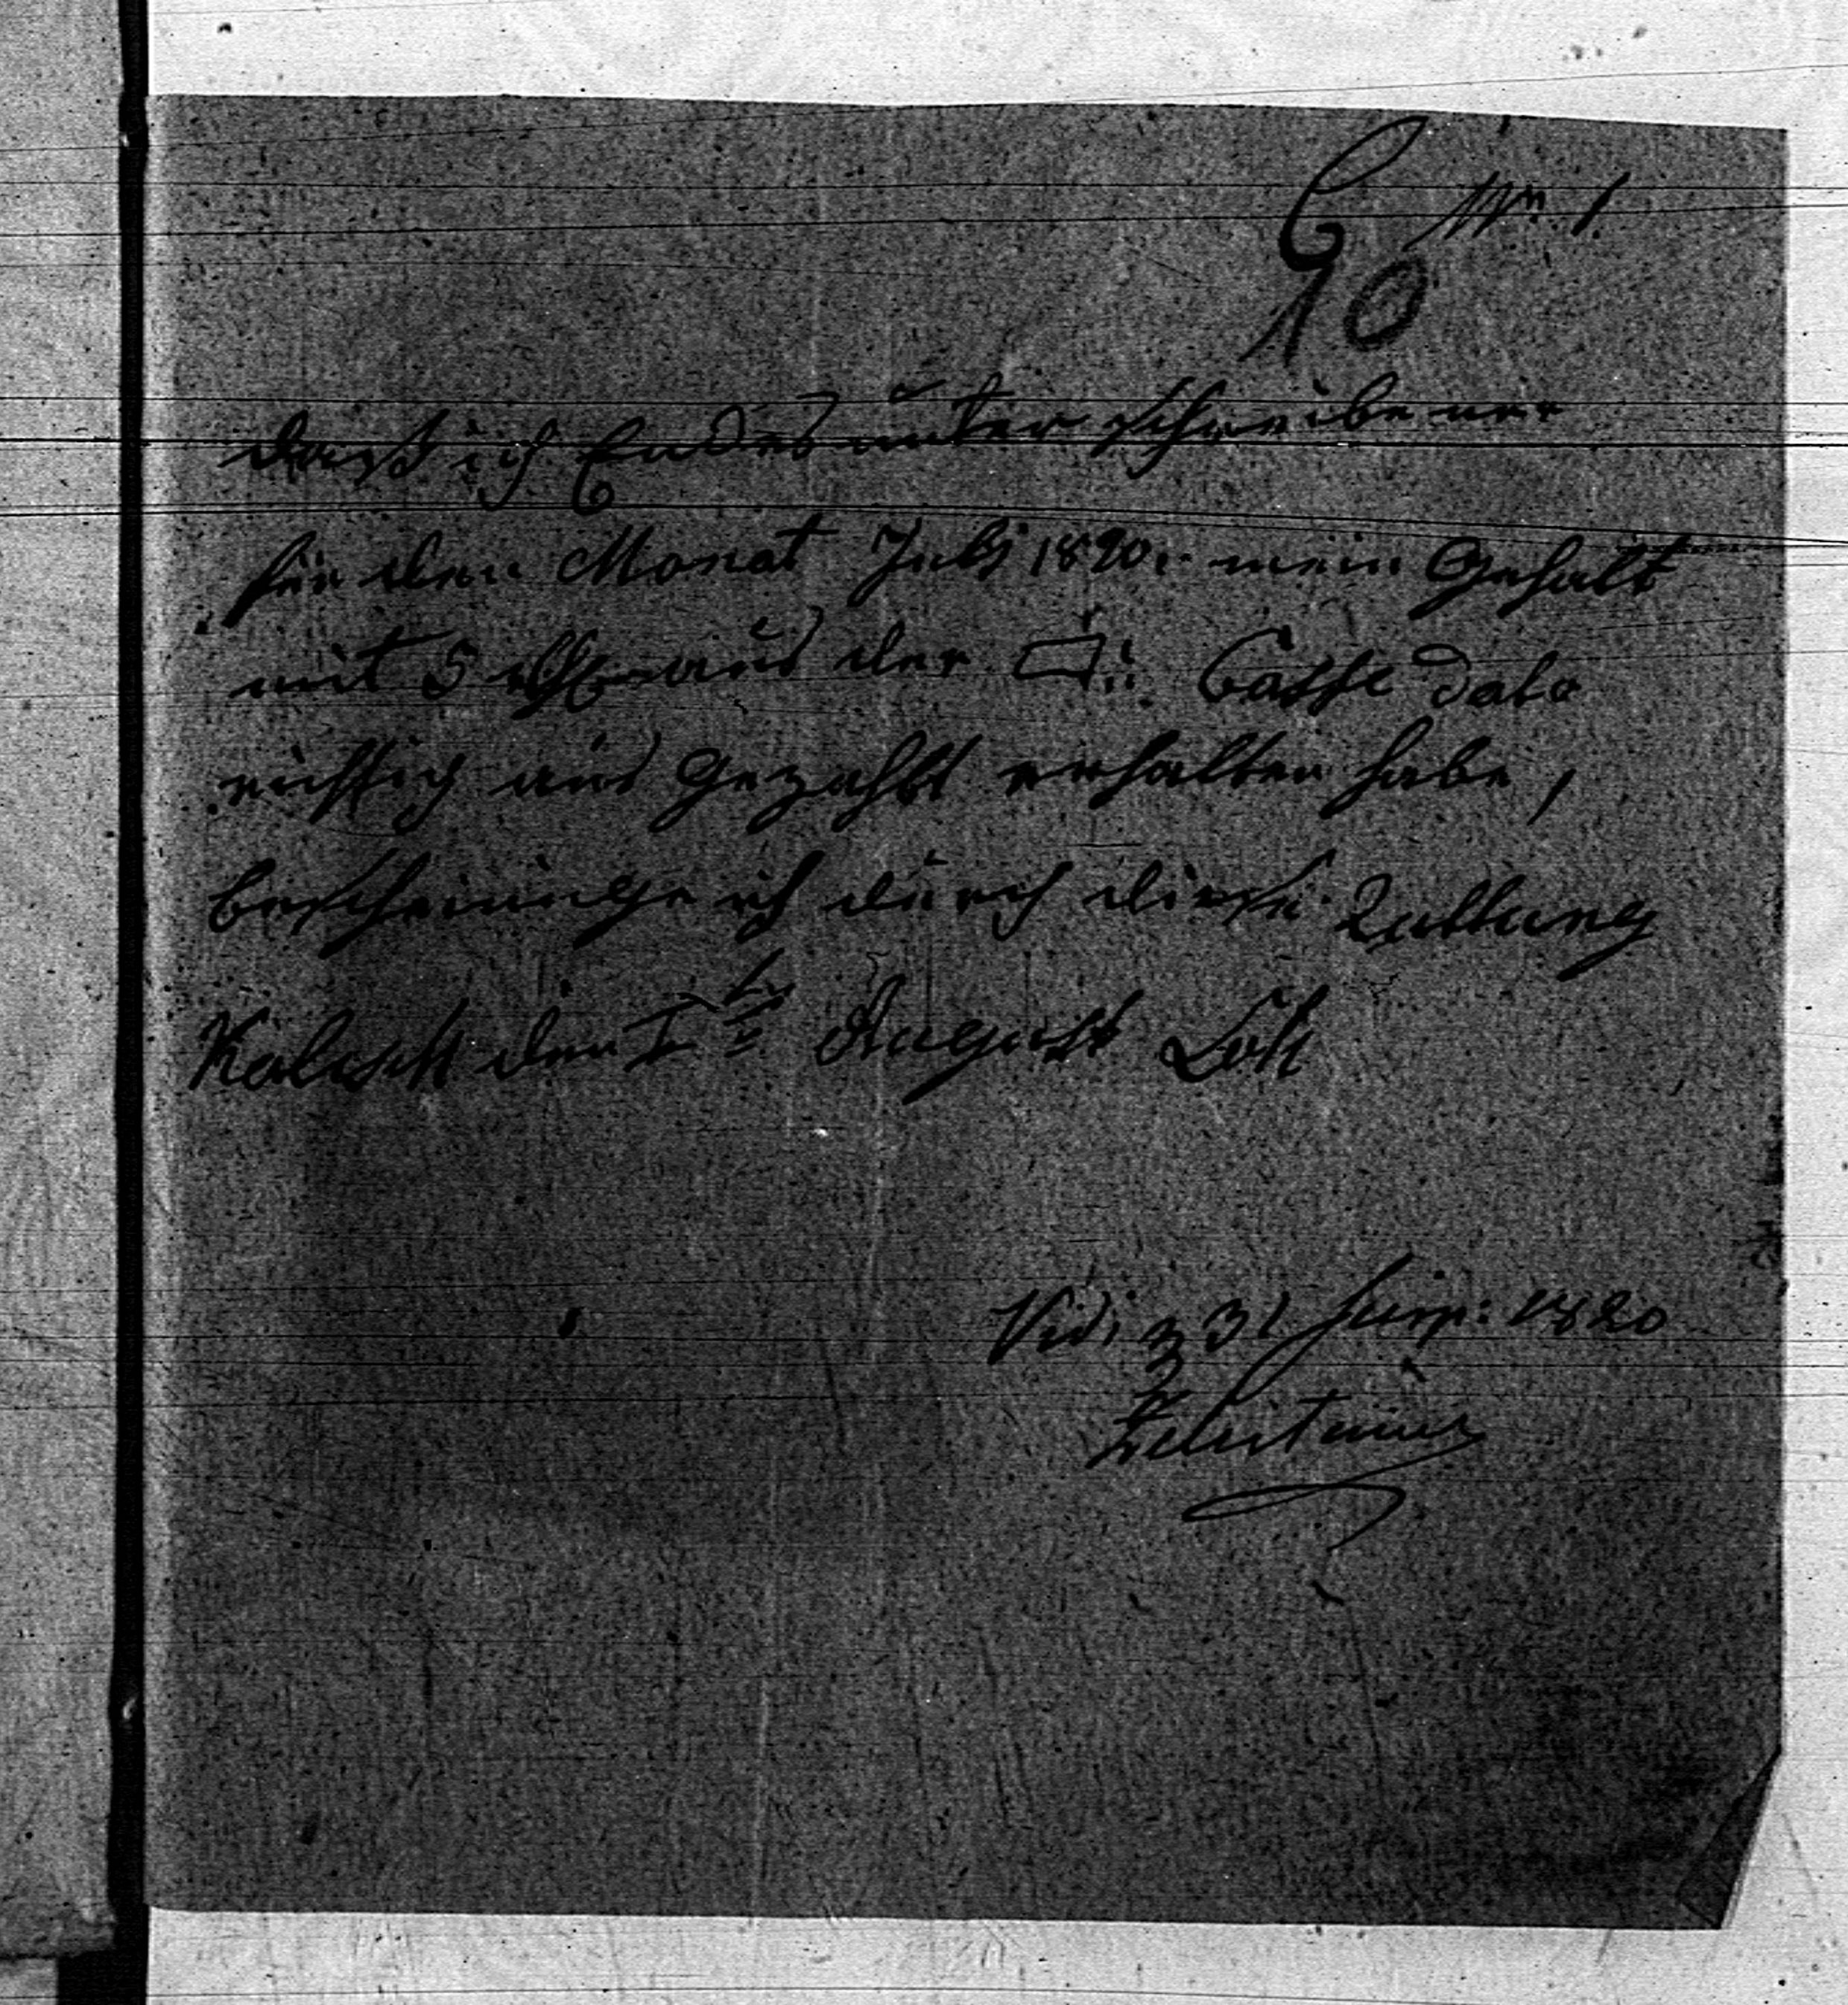 Nr. 1
10
Daß ich Endes unter schriebener
für den Monat Juli 1820. mein Gehalt
mit 5 aus der □:: Casse dato
richtig aus gezahlt erhalten habe,
bescheinige ich durch diese Quttung
Kalisch den 1 August
Vidi 31 1820